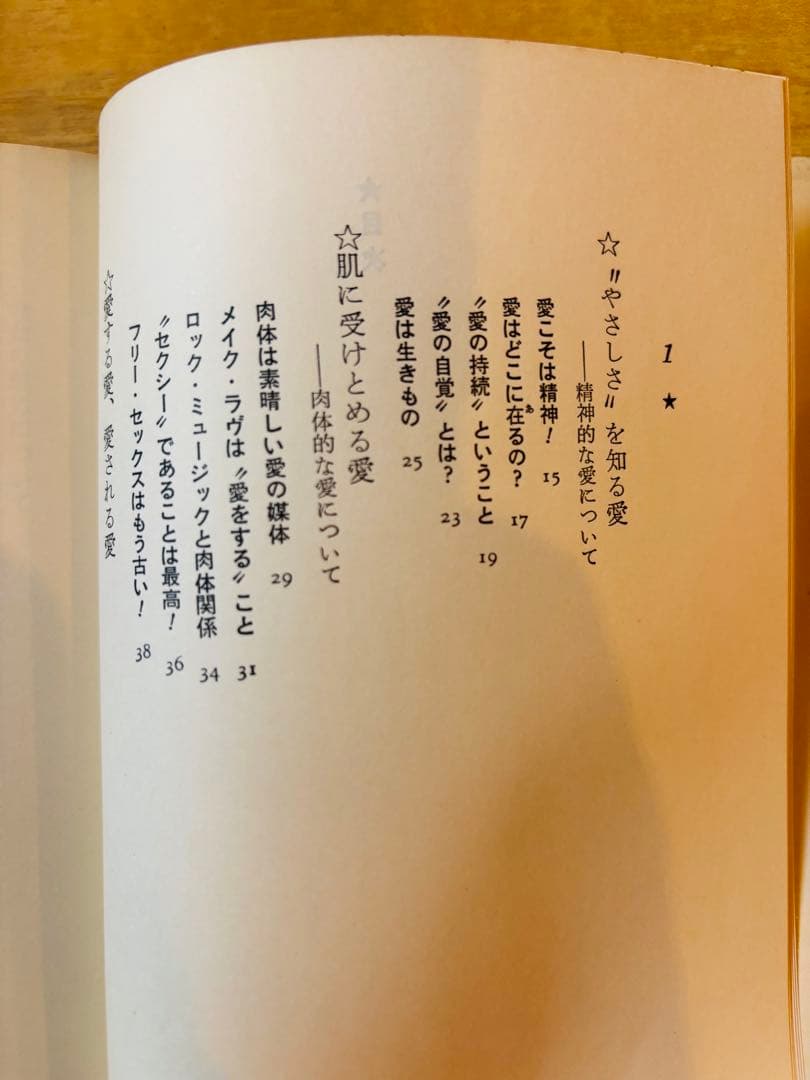 1 ★
☆〝やさしさ〟を知る愛
——精神的な愛について
愛こそは精神! 15
愛はどこに在るの? 17
〝愛の持続〟ということ 19
〝愛の自覚〟とは? 23
愛は生きもの 25
☆肌に受けとめる愛
——肉体的な愛について
肉体は素晴しい愛の媒体 29
メイク・ラヴは〝愛をする〟こと 31
ロック・ミュージックと肉体関係 34
〝セクシー〟であることは最高! 36
フリー・セックスはもう古い! 38
☆愛する愛、愛される愛